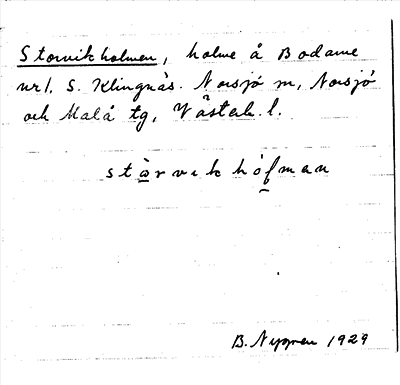 Storvikholmen, holme å Bodarne
nr 1. S. Klingnäs. Norsjö sn, Norsjö
och Malå tg, Västerb. l.
stòrvikhólman
B. Nygren 1929